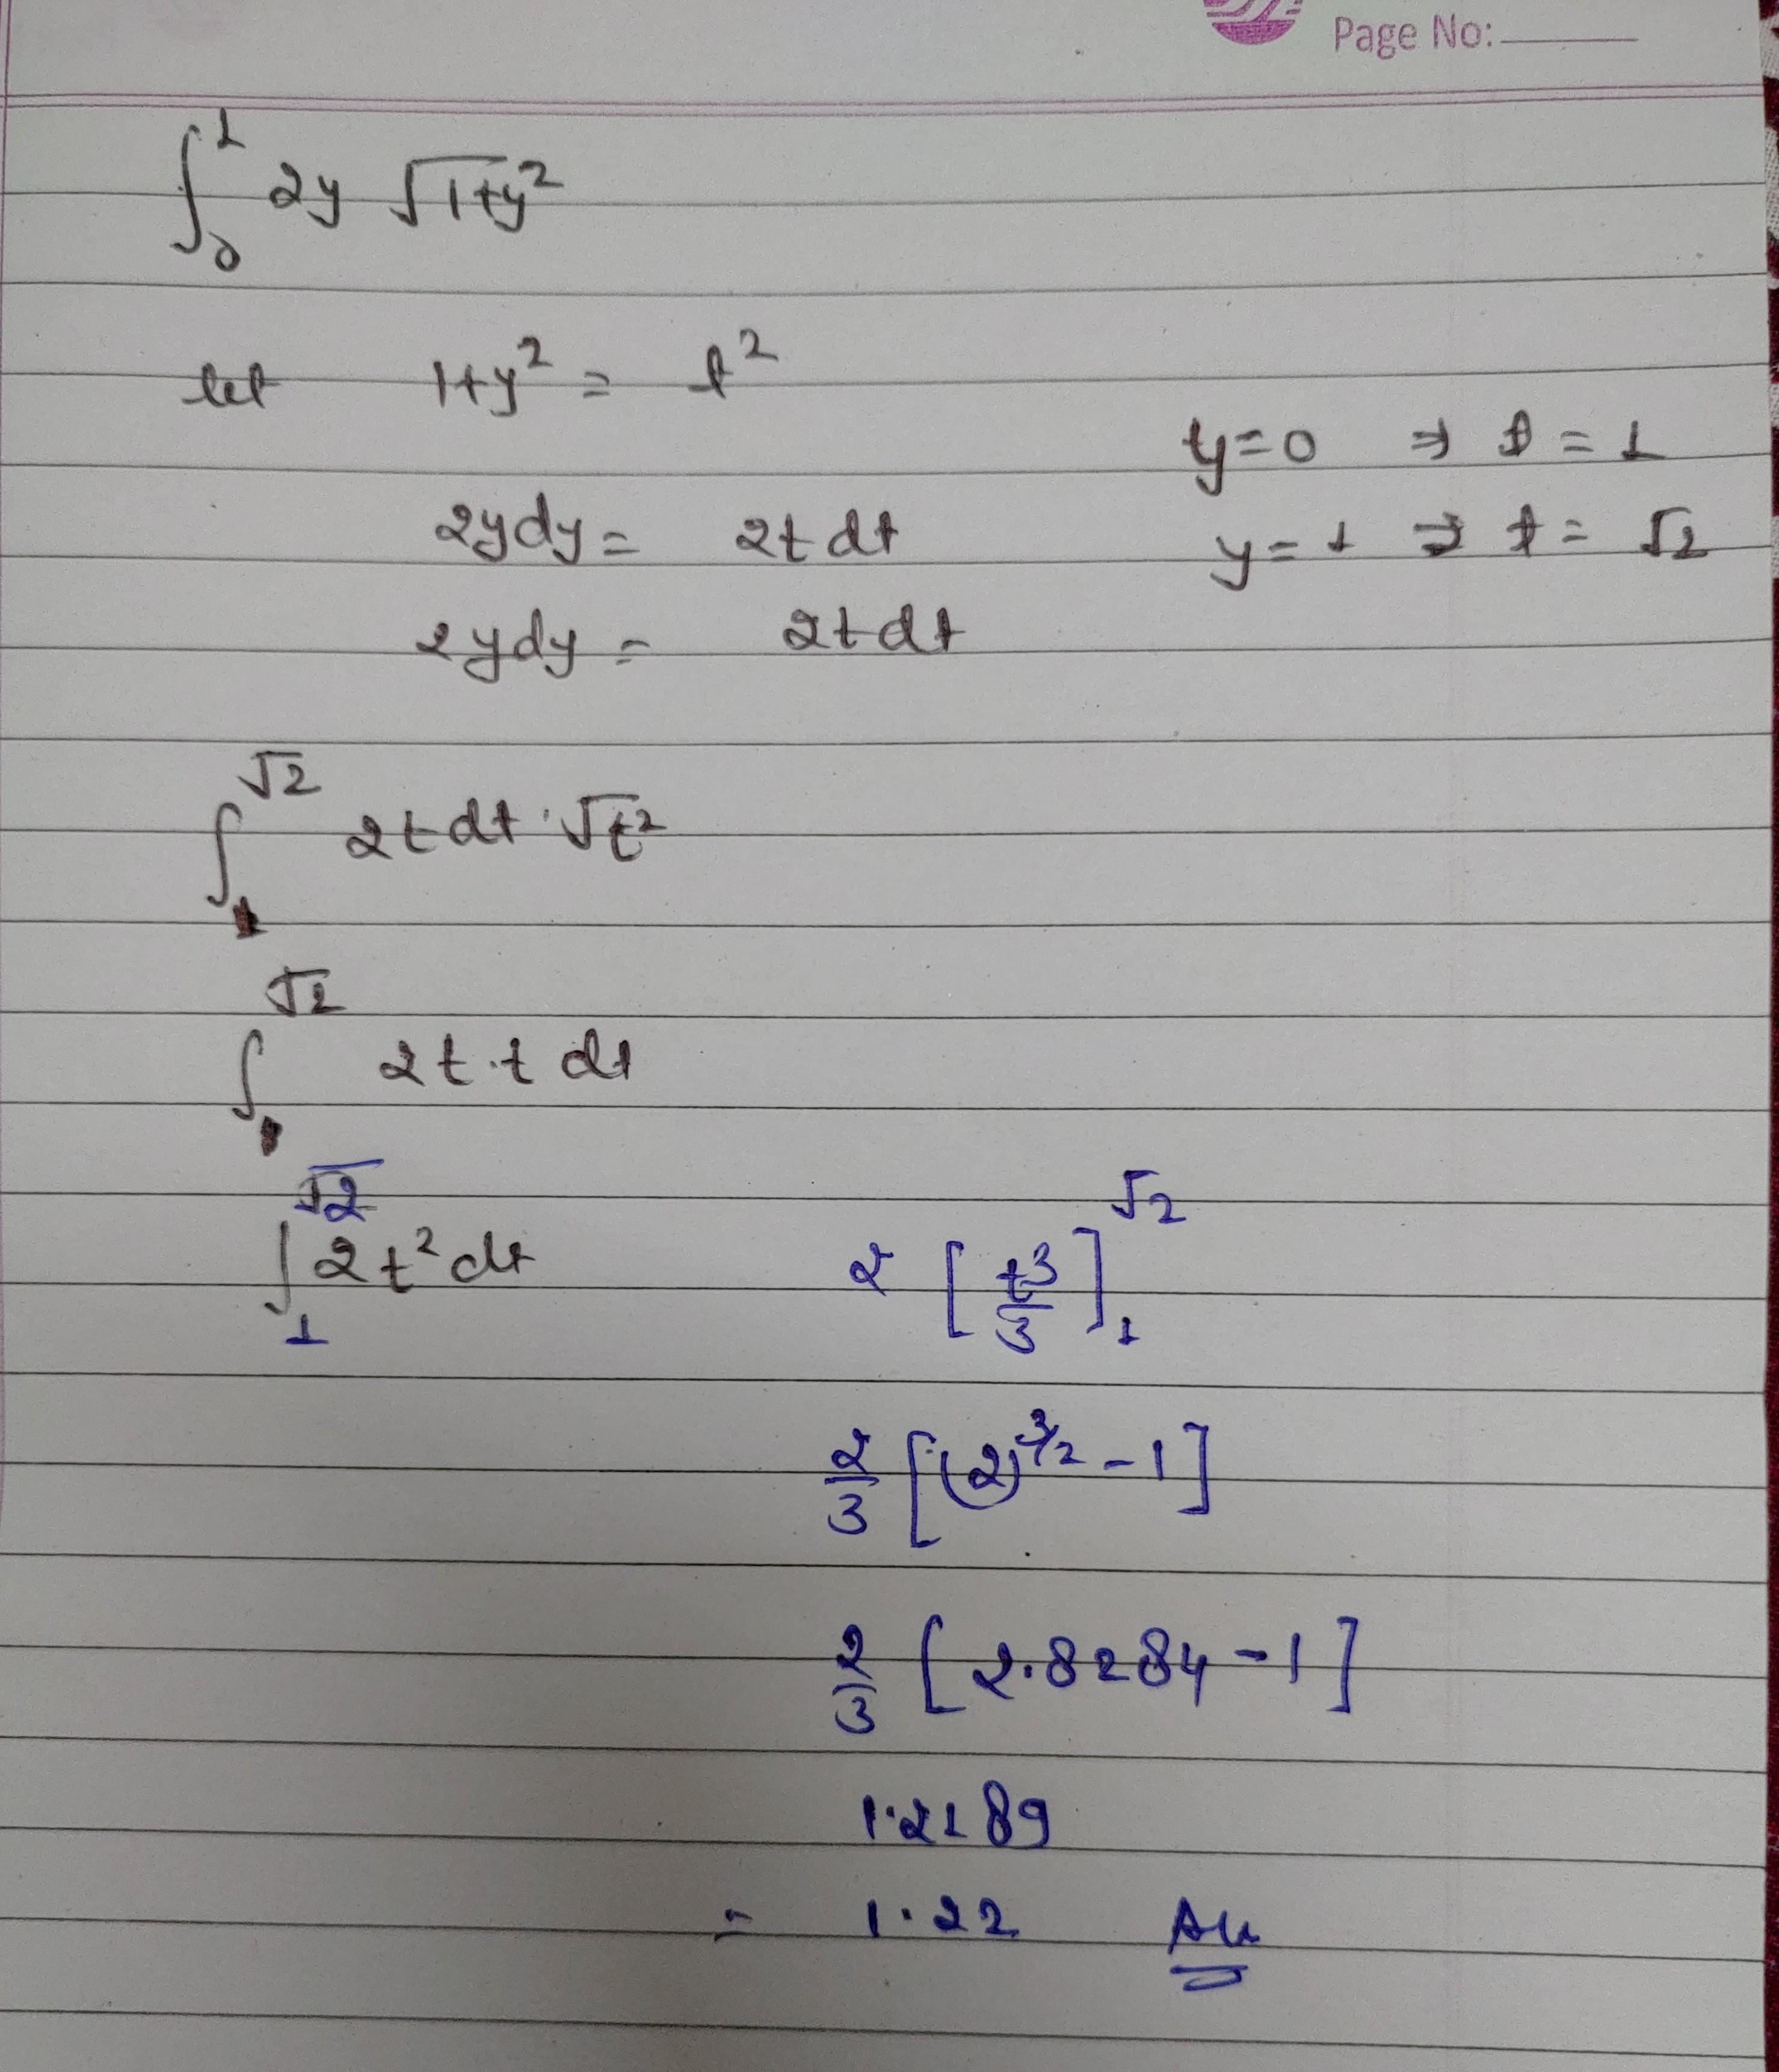 Page No:
∫₀¹ 2y √1+y²
let 1+y² = t²
y=0 ⇒ t = 1
2ydy = 2t dt
y=1 ⇒ t = √2
2ydy = 2tdt
∫₁^√2 2t dt · √t²
∫₁^√2 2t·t dt
∫₁^√2 2t² dt 2 [t³/3]₁^√2
2/3 [(2)^3/2 - 1]
2/3 [2.8284 - 1]
1.2189
= 1.22 Ans